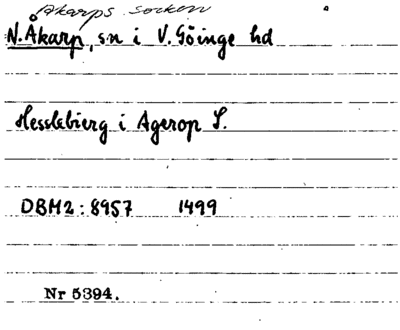 Åkarps socken
N. Åkarp, sn i V. Göinge hd
Hesslebierg i Agerop S.
DBM2: 8957 1499
Nr 5394.